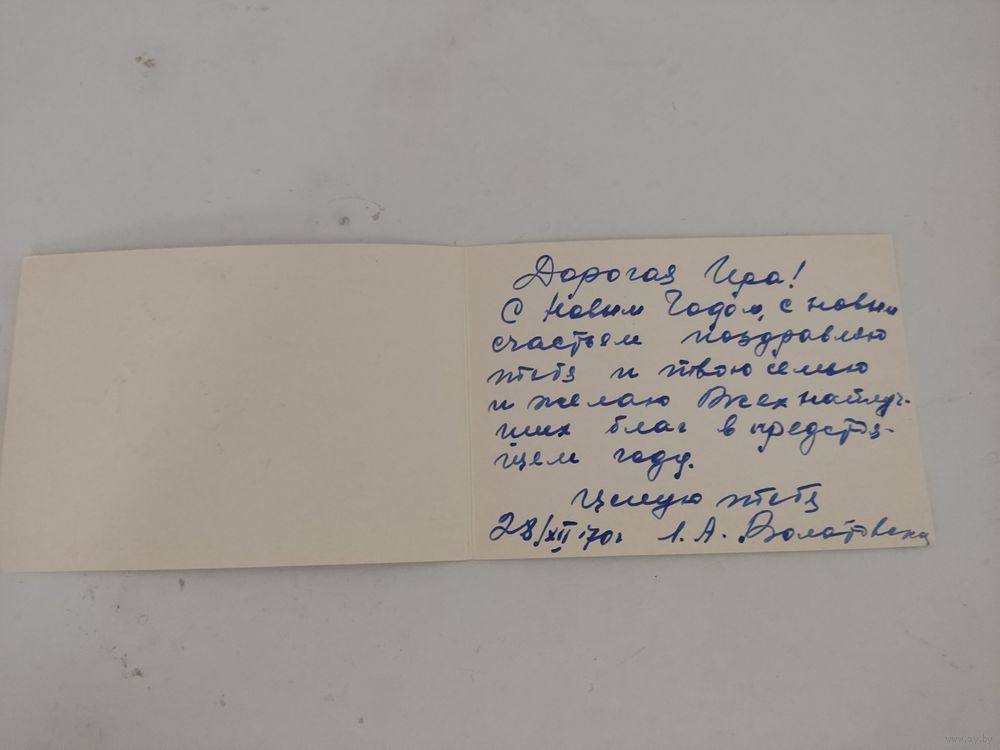 Дорогая Ира!
С Новым Годом, с новым
счастьем поздравляю
тебя и твою семью
и желаю Всех наилуч-
ших благ в предстоя-
щем году.
Целую тебя
28/XII 70г Л. А.
www.ay.by